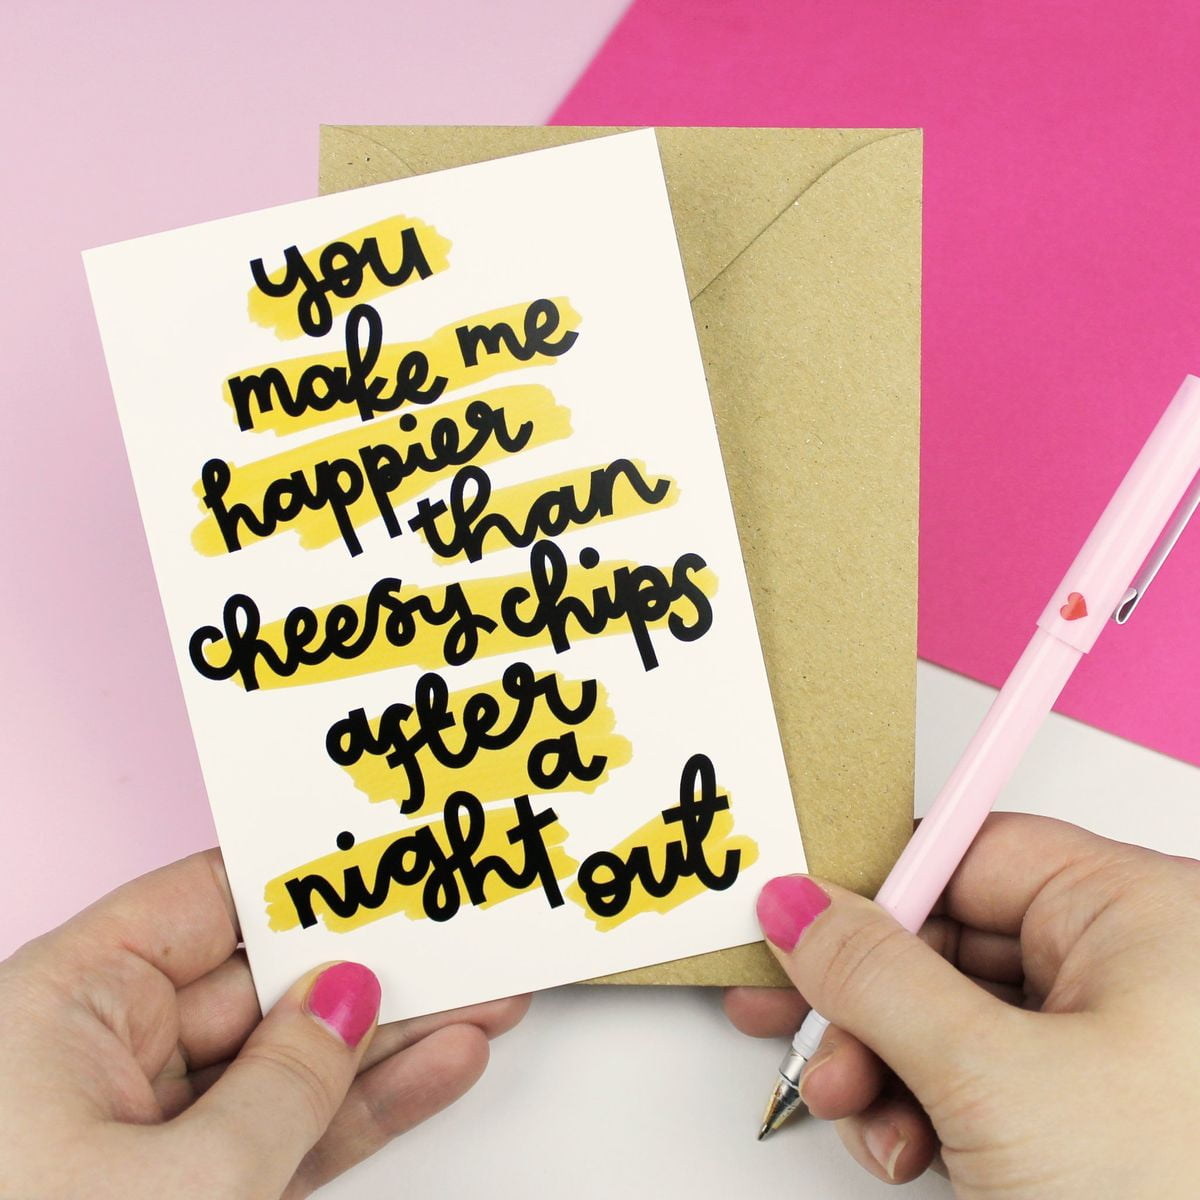 you
make me
happier
than
cheesy chips
after
a
night out